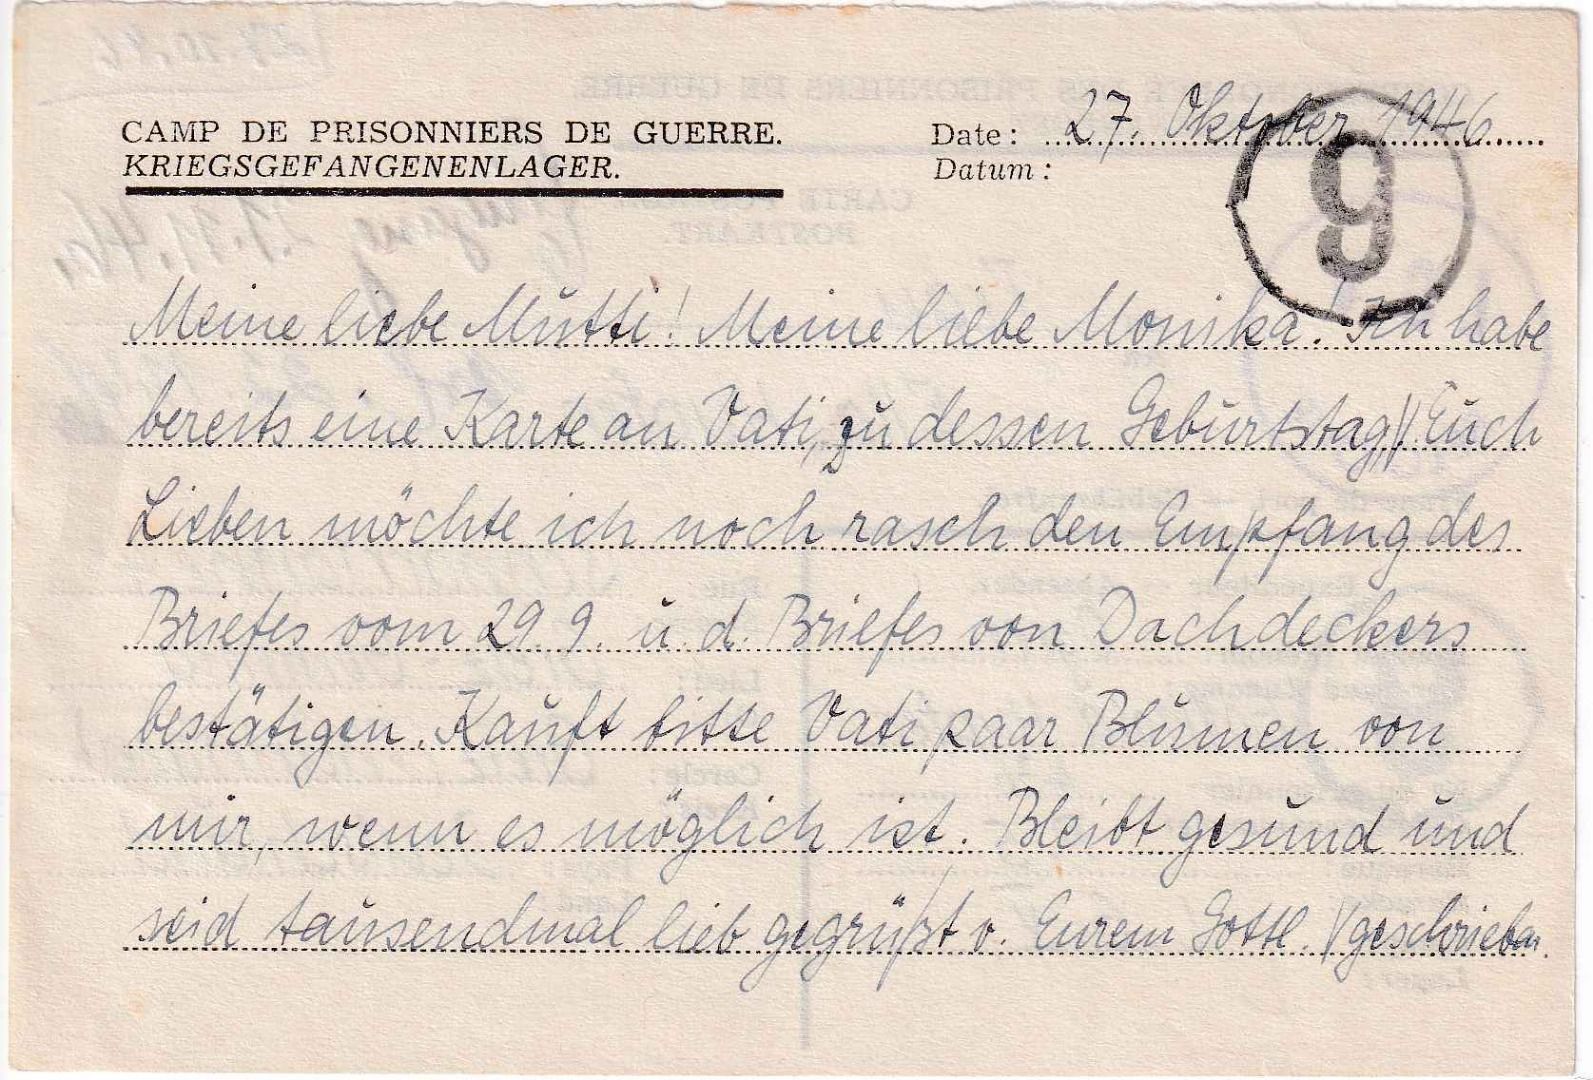 CAMP DE PRISONNIERS DE GUERRE.
KRIEGSGEFANGENENLAGER.
Date: 27. Oktober 1946.
Datum:
9
Meine liebe Mutti! Meine liebe Monika! Ich habe
bereits eine Karte an Vati, zu dessen Geburtstag // Euch
Lieben möchte ich noch rasch den Empfang des
Briefes vom 29.9. u. d. Briefes von Dachdeckers
bestätigen. Kauft bitte Vati paar Blumen von
mir, wenn es möglich ist. Bleibt gesund und
seid tausendmal lieb gegrüßt v. Eurem Gottl. // geschrieben.